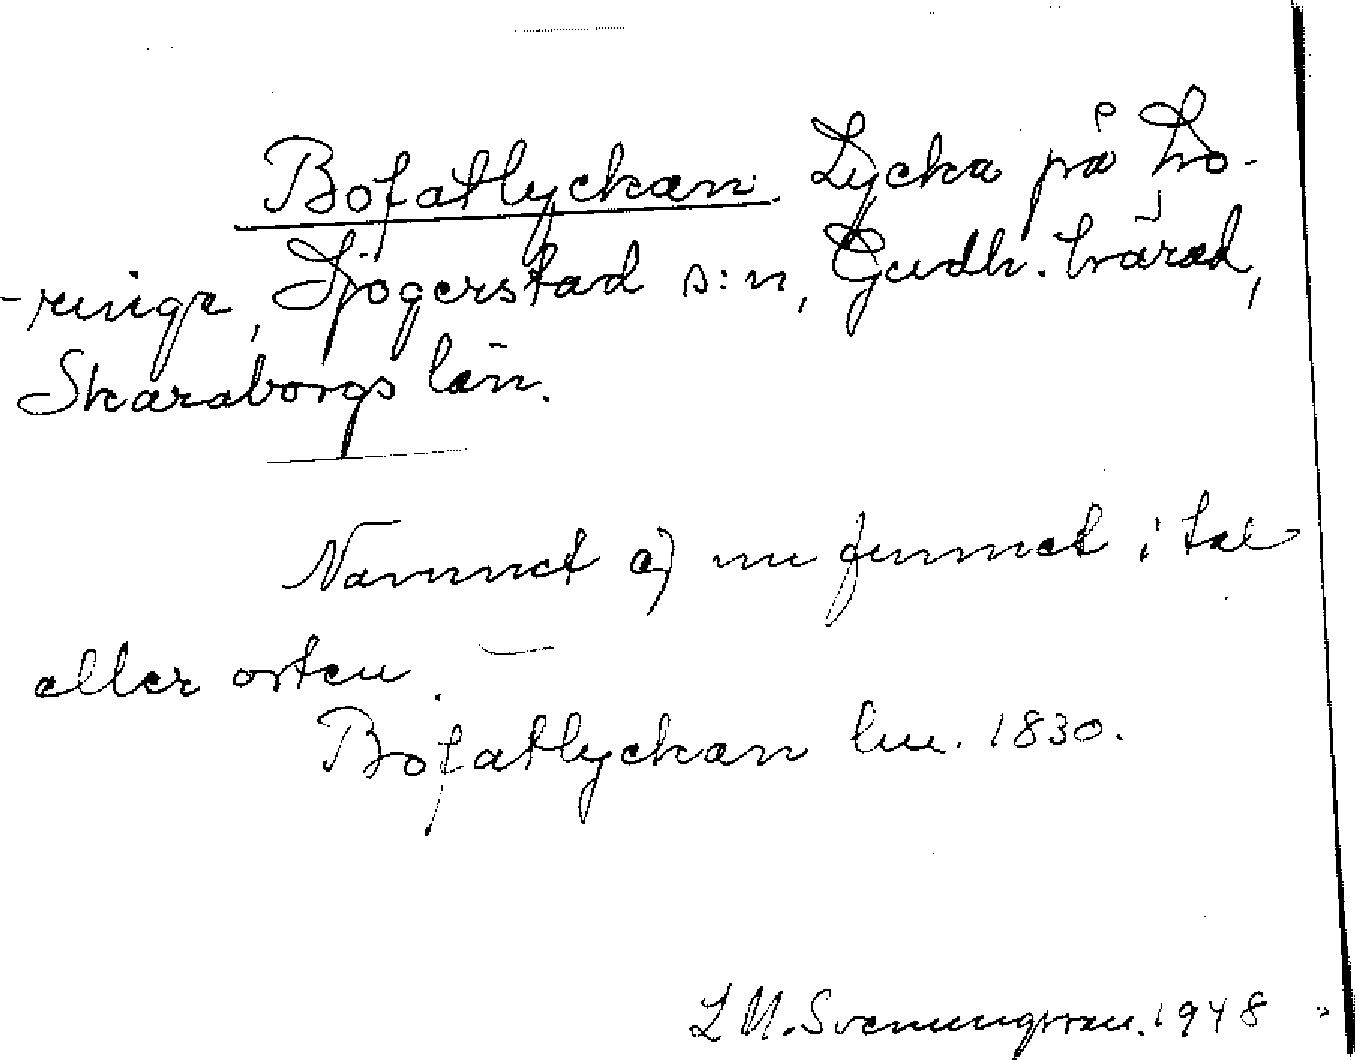 Bofatlyckan. Lycka på Ho-
-ringa, Sjögerstad s:n, Gudh. härad,
Skaraborgs län.
Namnet ej nu funnet i tal
eller orten.
Bofatlyckan lm. 1830.
L M. Svenungsson. 1948